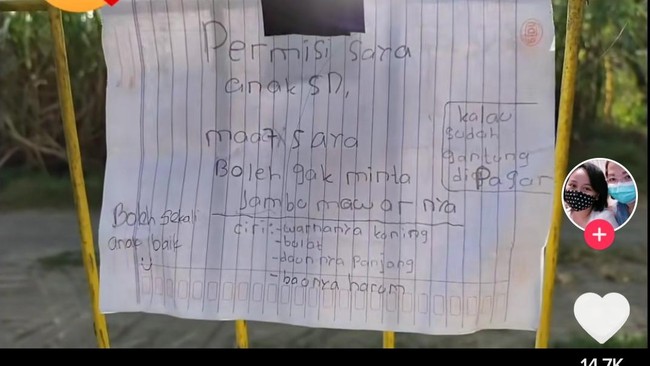 Permisi saya
anak SD,
maaf saya
Boleh gak minta
Jambu mawar nya
kalau
sudah
gantung
di Pagar
Ciri :- warnanya kuning
- bulat
- daunnya panjang
- baunya harum
Boleh sekali
anak baik
14.7K